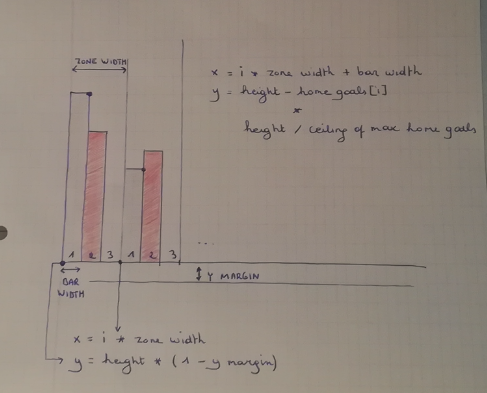 ZONE WIDTH
x = i * zone width + bar width
y = height - home goals [i]
*
height / ceiling of max home goals
1 2 3 1 2 3
...
BAR
WIDTH
Y MARGIN
x = i * zone width
y = height * (1 - y margin)